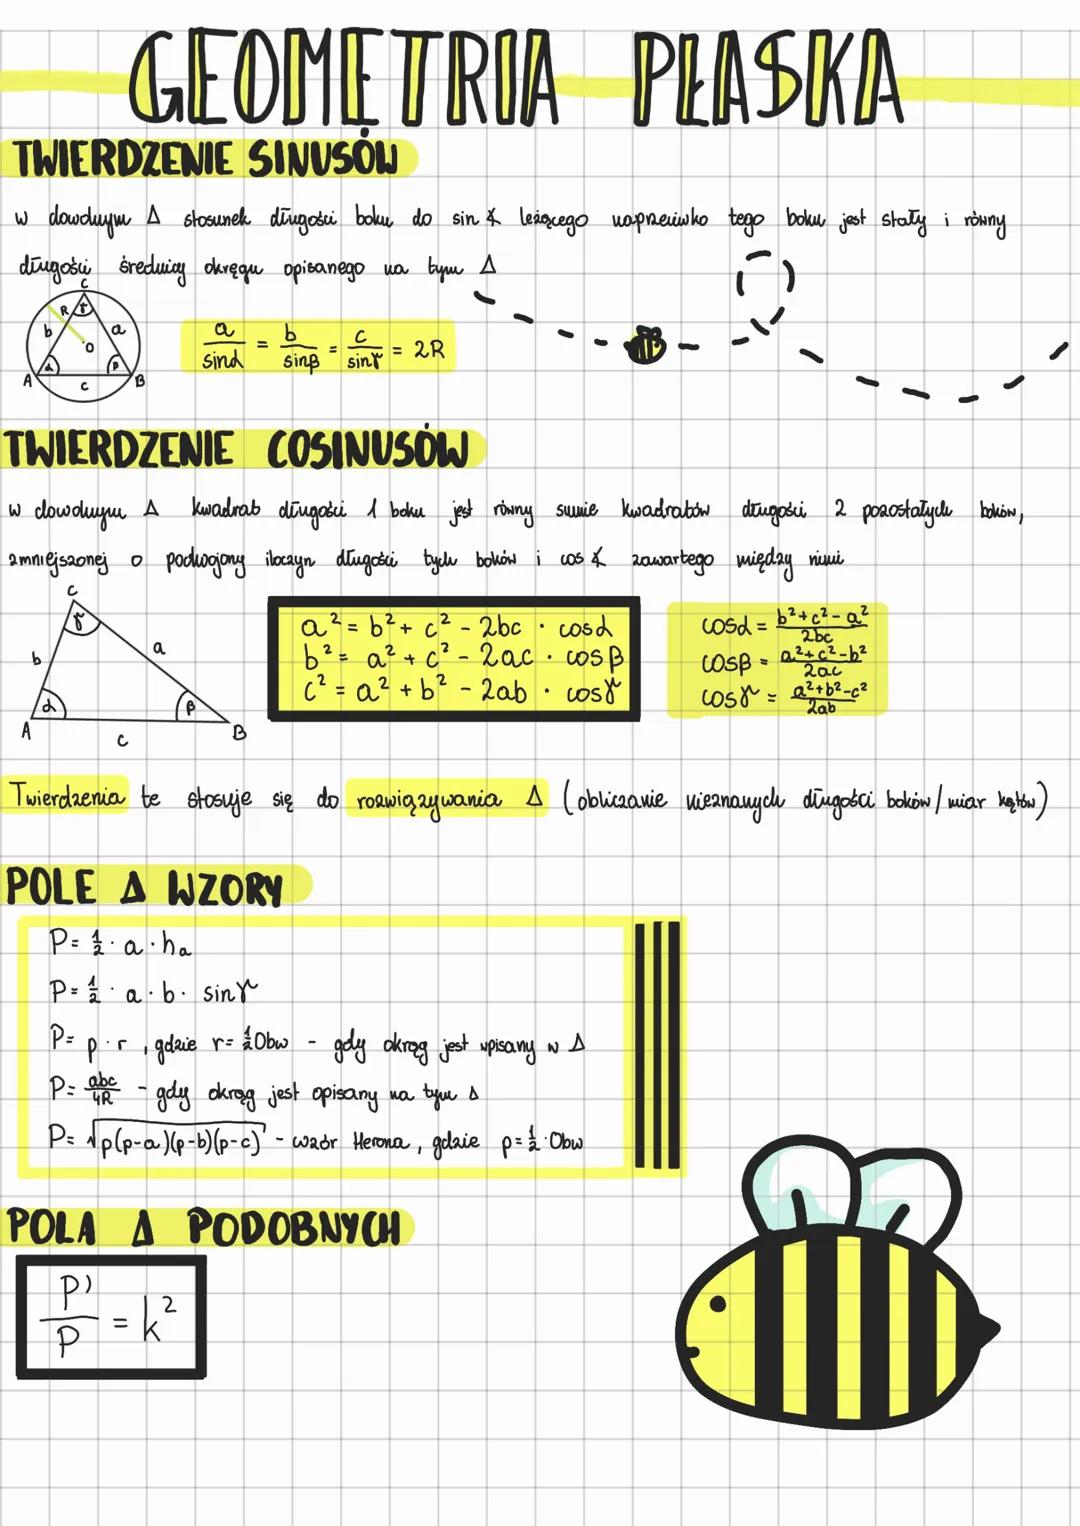 GEOMETRIA PŁASKA
TWIERDZENIE SINUSÓW
w dowolnym Δ stosunek długości boku do sin ∡ leżącego naprzeciwko tego boku jest stały i równy
długości średnicy okręgu opisanego na tym Δ
C
R γ
b a
O
α β
A c B
a/sinα = b/sinβ = c/sinγ = 2R
TWIERDZENIE COSINUSÓW
w dowolnym Δ kwadrat długości 1 boku jest równy sumie kwadratów długości 2 pozostałych boków,
zmniejszonej o podwojony iloczyn długości tych boków i cos ∡ zawartego między nimi
C
γ
b a
α β
A c B
a² = b² + c² - 2bc · cosα
b² = a² + c² - 2ac · cosβ
c² = a² + b² - 2ab · cosγ
cosα = b²+c²-a²/2bc
cosβ = a²+c²-b²/2ac
cosγ = a²+b²-c²/2ab
Twierdzenia te stosuje się do rozwiązywania Δ (obliczanie nieznanych długości boków/miar kątów)
POLE Δ WZORY
P= ½ · a · hₐ
P= ½ · a · b · sinγ
P= p · r , gdzie r= ½Obw - gdy okrąg jest wpisany w Δ
P= abc/4R - gdy okrąg jest opisany na tym Δ
P= √p(p-a)(p-b)(p-c) - wzór Herona, gdzie p=½·Obw
POLA Δ PODOBNYCH
P'/P = k²